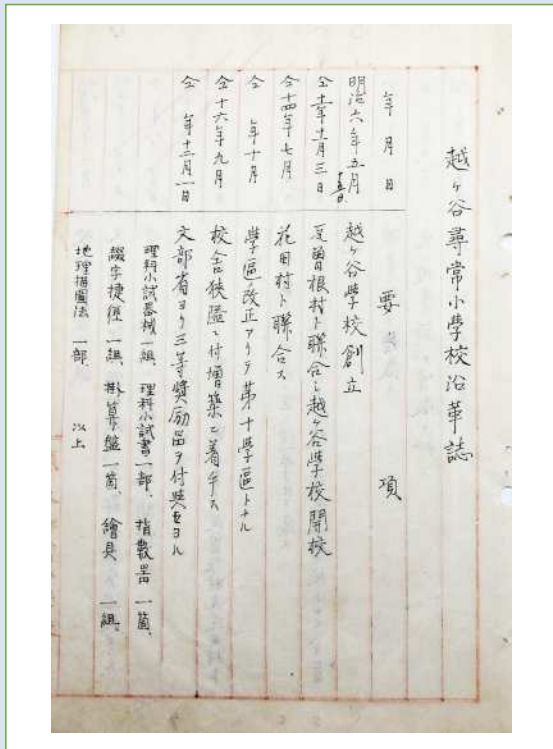 越ヶ谷尋常小學校沿革誌
年月日 要項
明治六年五月十五日 越ヶ谷學校創立
仝十一年十一月三日 瓦曽根村ト聯合シ越ヶ谷學校開校
仝十四年七月 花田村ト聯合ス
仝 年十月 學區ノ改正アリテ第十學區トナル
仝十六年九月 校舎狭隘ニ付増築ニ着手ス
仝 年十二月一日 文部省ヨリ三等奬励品ヲ付與セラル
理科小試器械一組、理科小試書一部、指數器一箇、
綴字捷徑一組、算盤一箇、繪具一組、
地理描圖法一部、 以上